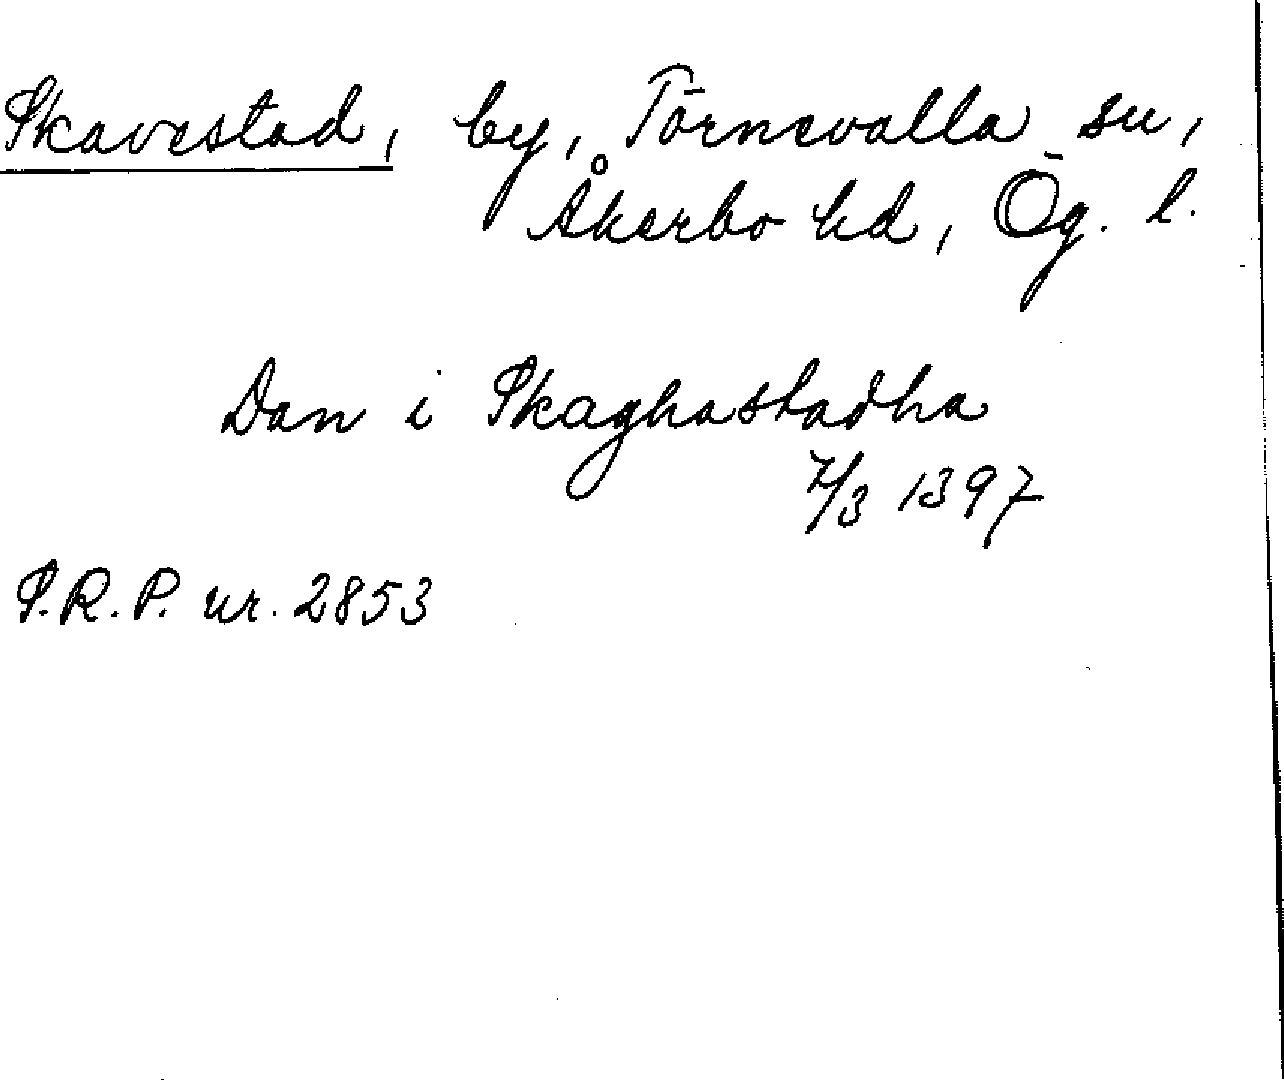 Skavestad, by, Törnevalla sn,
Åkerbo hd, Ög. l.
Dan i Skaghastadha
7/3 1397
S.R.P. nr. 2853